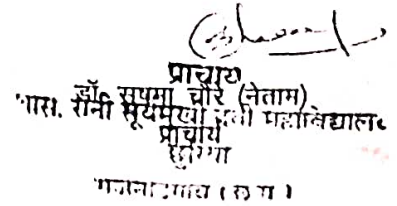 प्राचार्य
डॉ. सुषमा चौरे (नेताम)
शास. रानी सूर्यमुखी देवी महाविद्यालय
प्राचार्य
छुरिया
राजनांदगांव (छ.ग.)